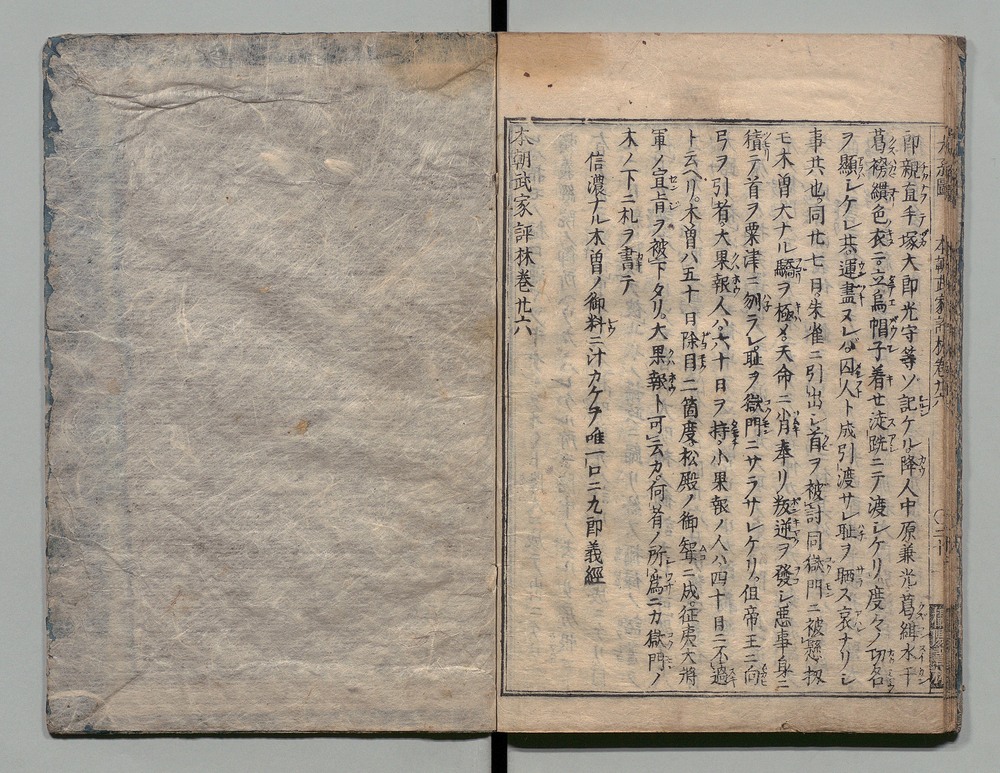 郎親直手塚大郎光守等ソ記ケル降人中原兼光葛紺水干
葛袴縹色衣ニ立烏帽子着セ徒跣ニテ渡シケリ度々ノ功名
ヲ顯シケレ共運盡ヌレバ囚人ト成引渡サレ耻ヲ晒ス哀ナリシ
事共也同廿七日朱雀ニ引出シ首ヲ被討同獄門ニ被懸扨
モ木曽大ナル驕ヲ極メ天命ニ背奉リ叛逆ヲ發シ悪事身ニ
積テ首ヲ粟津ニ刎ラレ耻ヲ獄門ニサラサレケリ但帝王ニ向
弓ヲ引者大果報人ハ六十日ヲ持小果報ノ人ハ四十日ニ不過
ト云ヘリ木曽八五十日除目二箇度松殿ノ御聟ニ成征夷大將
軍ノ宣旨ヲ被下タリ大果報ト可云カ何者ノ所爲ニカ獄門ノ
木ノ下ニ札ヲ書テ
信濃ナル木曽ノ御料ニ汁カケテ唯一口ニ九郎義經
本朝武家評林巻廿六